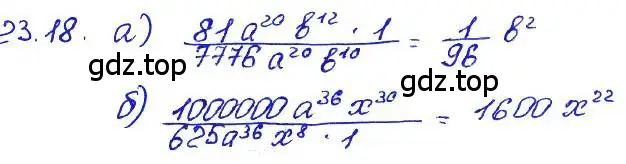 23.18. а) \frac{81 a^{20} b^{12} \cdot 1}{7776 a^{20} b^{10}} = \frac{1}{96} b^2
gdz.top gdz.top
б) \frac{1000000 a^{36} x^{30}}{625 a^{36} x^8 \cdot 1} = 1600 x^{22}
gdz.top gdz.top